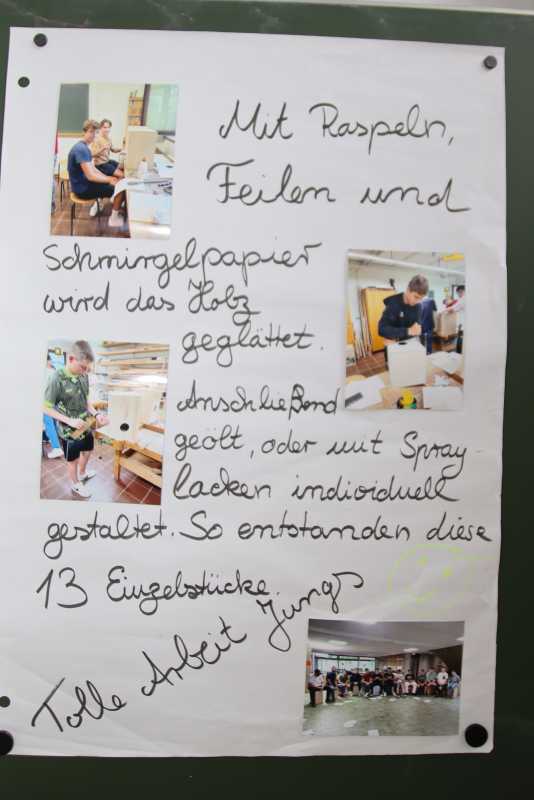 Mit Raspeln,
Feilen und
Schmirgelpapier
wird das Holz
geglättet.
Anschließend
geölt, oder mit Spray-
lacken individuell
gestaltet. So entstanden diese
13 Einzelstücke.
Tolle Arbeit Jungs